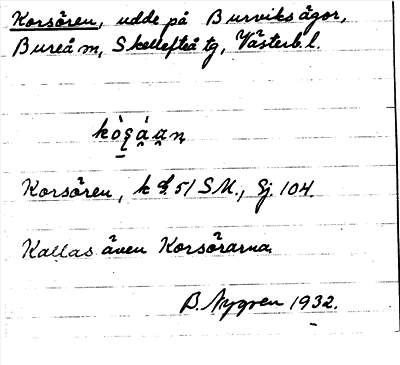 Korsören, udde på Burviks ägor,
Bureå m, Skellefteå tg, Västerb. l.
Korsören, k bl. 51 SM., Gj. 104.
Kallas även Korsörarna.
B. Nygren 1932.